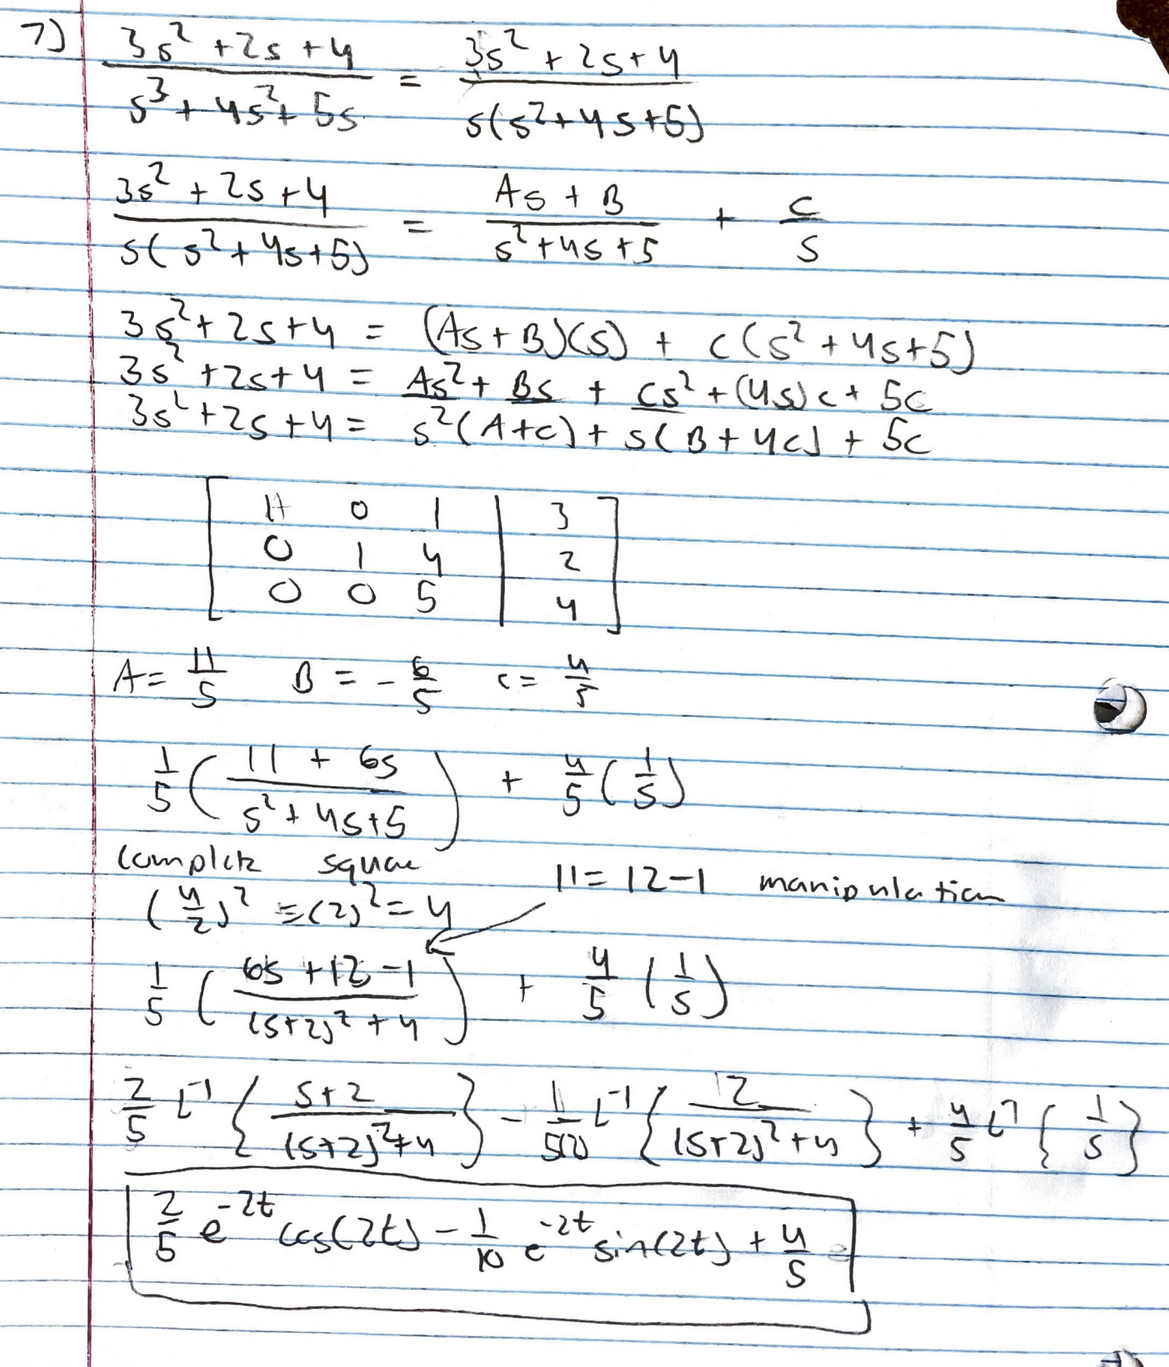 7) (3s² + 2s + 4)/(s³ + 4s² + 5s) = (3s² + 2s + 4)/(s(s² + 4s + 5))
(3s² + 2s + 4)/(s(s² + 4s + 5)) = (As + B)/(s² + 4s + 5) + C/s
3s² + 2s + 4 = (As + B)(s) + C(s² + 4s + 5)
3s² + 2s + 4 = As² + Bs + Cs² + (4s)C + 5C
3s² + 2s + 4 = s²(A + C) + s(B + 4C) + 5C
[ 1 0 1 | 3 ]
[ 0 1 4 | 2 ]
[ 0 0 5 | 4 ]
A = 11/5 B = -6/5 C = 4/5
1/5 ((11 + 6s)/(s² + 4s + 5)) + 4/5 (1/s)
Complete square
11 = 12 - 1 manipulation
(4/2)² = (2)² = 4
1/5 ((6s + 12 - 1)/((s+2)² + 4)) + 4/5 (1/s)
2/5 L⁻¹{(s + 2)/((s+2)² + 4)} - 1/5(2) L⁻¹{2/((s+2)² + 4)} + 4/5 L⁻¹{1/s}
2/5 e^(-2t) cos(2t) - 1/10 e^(-2t) sin(2t) + 4/5